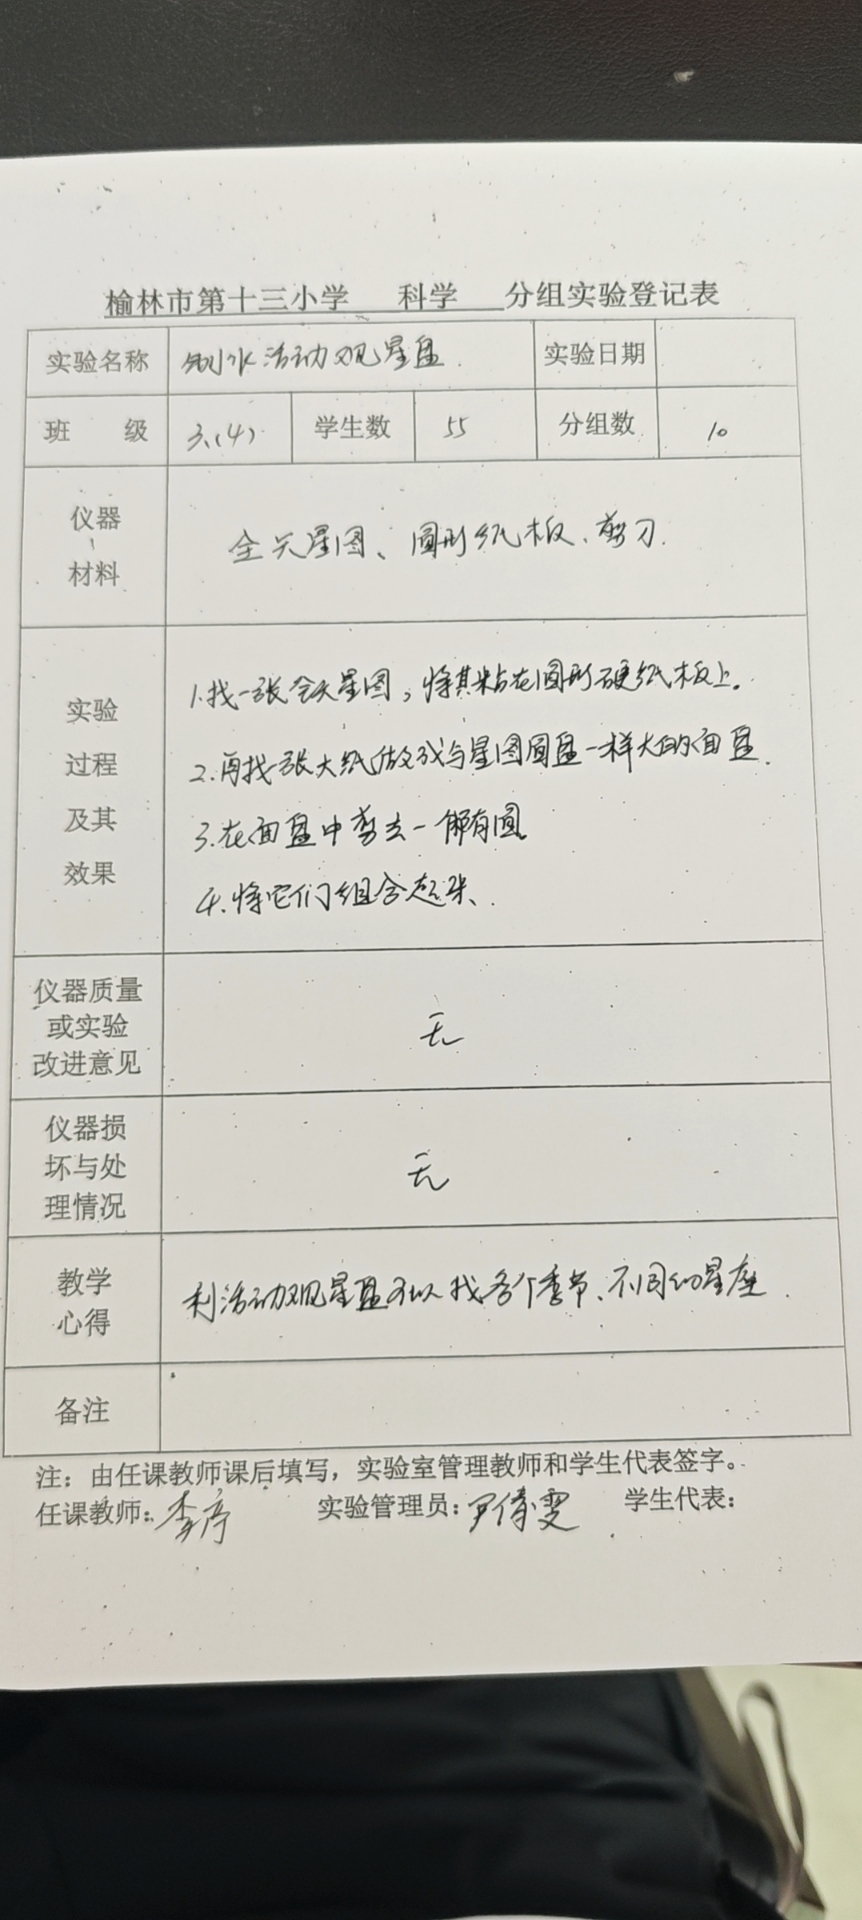 榆林市第十三小学 科学 分组实验登记表
实验名称 制作活动观星盘 实验日期
班 级 3.(4) 学生数 55 分组数 10
仪器
材料
全天星图、圆形纸板、剪刀.
实验
过程
及其
效果
1.找一张全天星图,将其粘在圆形硬纸板上。
2.再找一张大纸做成与星图圆盘一样大的面盘.
3.在面盘中剪去一 圆
4.将它们组合起来、
仪器质量
或实验
改进意见
无
仪器损
坏与处
理情况
无
教学
心得
利活动观星盘可以找各个季节、不同的星座.
备注
注:由任课教师课后填写,实验室管理教师和学生代表签字。
任课教师: 李 实验管理员: 尹倩雯 学生代表: